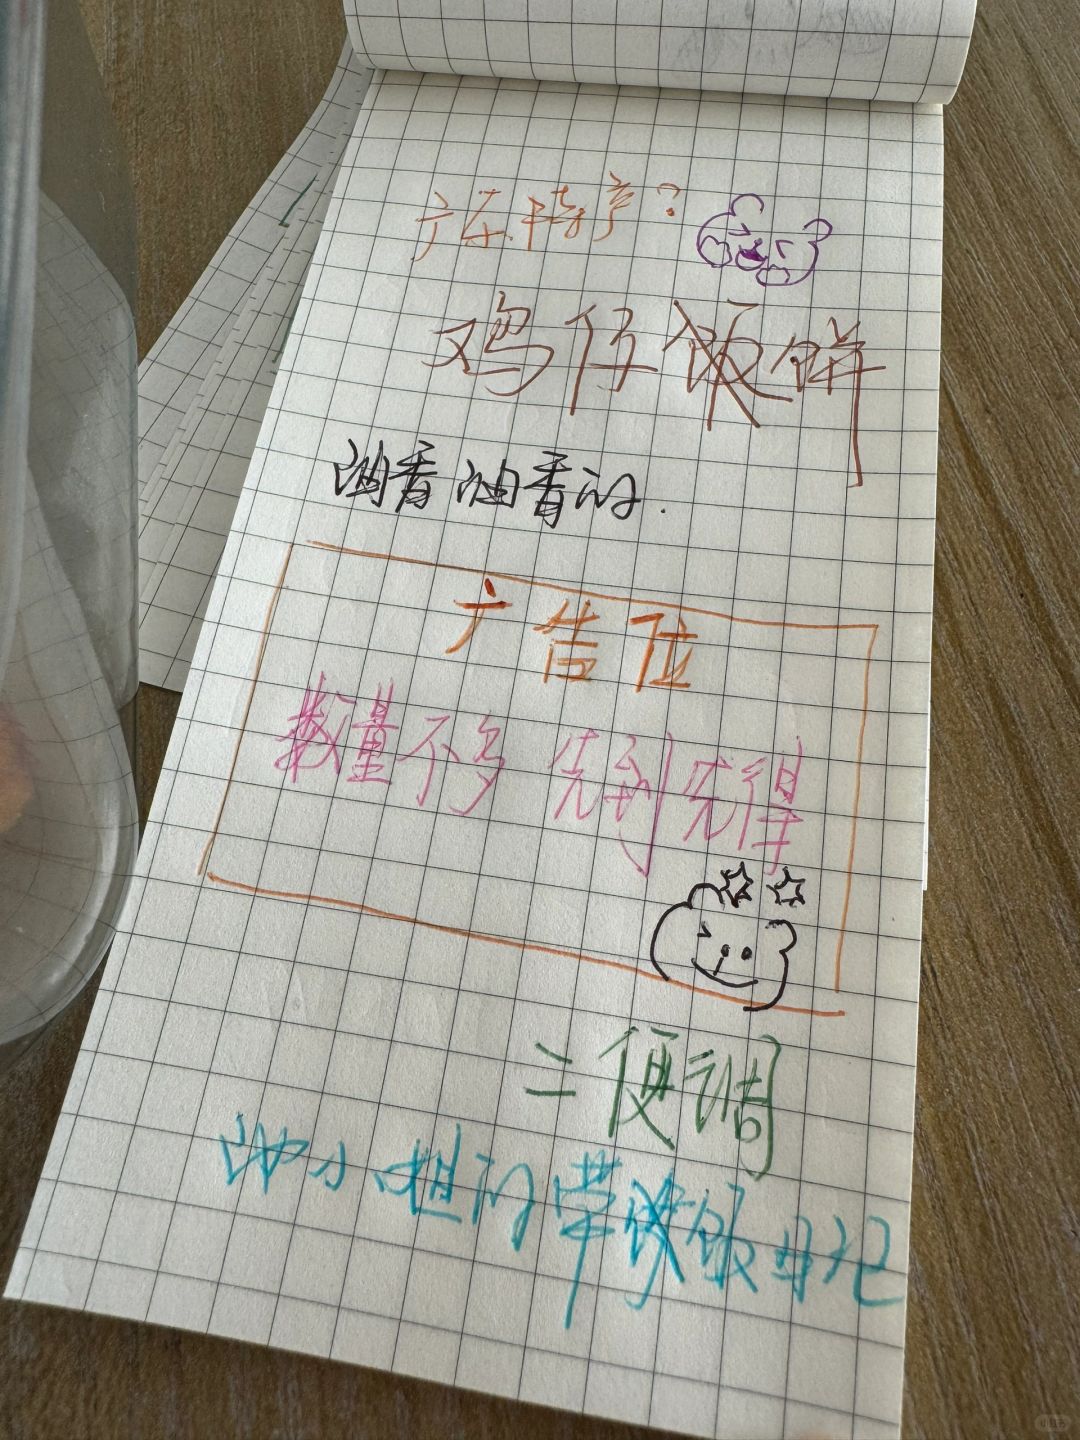 广东特产?
鸡仔饭饼
油香油香的.
广告位
数量不多 先到先得
二便调
小姐的带饭日记